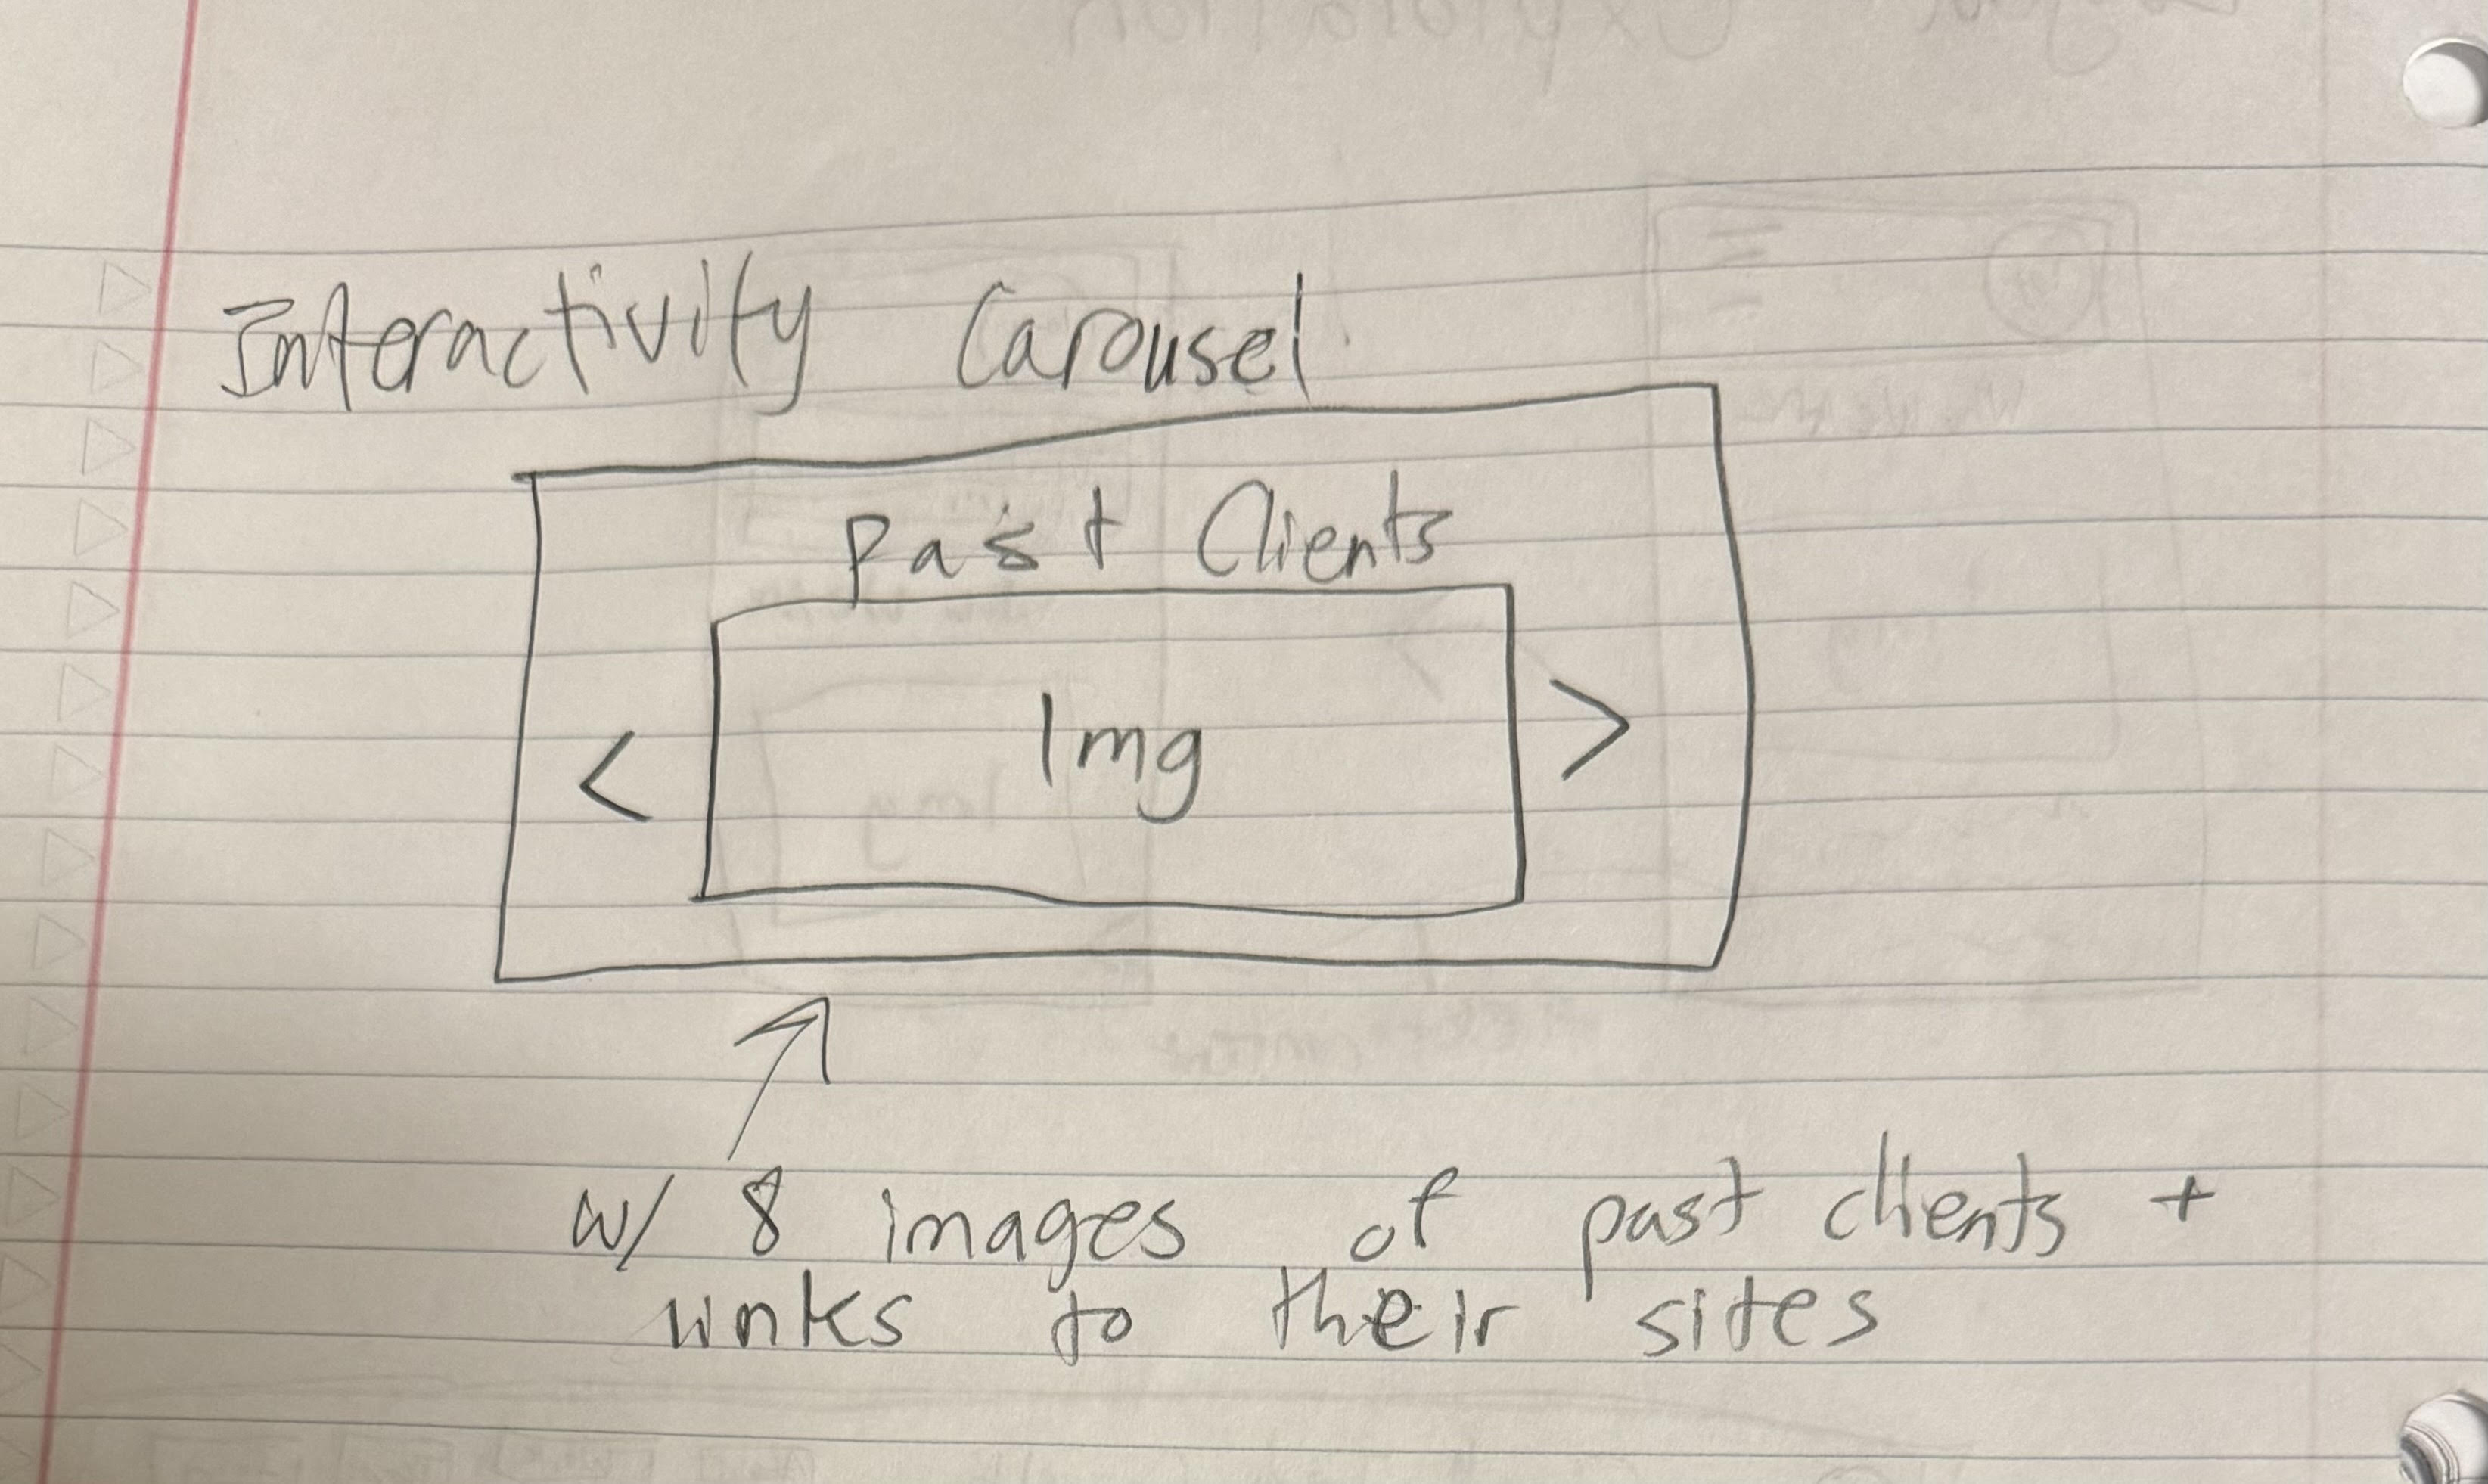 Interactivity Carousel
Past Clients
< Img >
w/ 8 images of past clients +
links to their sites